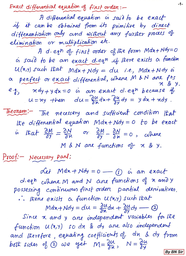 Exact differential equation of first order:-
A differential equation is said to be exact
if it can be obtained from its primitive by direct
differentiation only and without any further process of
elimination or multiplication etc.
A d.eqn of first order of the form Mdx+Ndy=0
is said to be an exact d.eqn if there exists a function
u(x,y) such that Mdx+Ndy = du i.e., Mdx+Ndy is
a perfect or exact differential, where M & N are fns of
x & y.
xdy+ydx=0 is an exact d.eqn because if
u=xy then du = ∂u/∂x dx + ∂u/∂y dy = ydx+xdy.
Theorem:- The necessary and sufficient condition that
the differential equation Mdx+Ndy=0 to be exact
is that ∂M/∂y = ∂N/∂x or ∂M/∂y - ∂N/∂x = 0, where
M & N are functions of x & y.
Proof:- Necessary part:
Let Mdx+Ndy=0 —① is an exact
d.eqn where M and N are functions of x and y
possessing continuous first order partial derivatives.
∴ There exists a function u(x,y) such that
Mdx+Ndy = du = ∂u/∂x dx + ∂u/∂y dy —②
Since x and y are independent variables for the
function u(x,y) so dx & dy are also independent
and therefore, equating coefficient of dx & dy from
both sides of ② we get M = ∂u/∂x, N = ∂u/∂y
By BM Sir